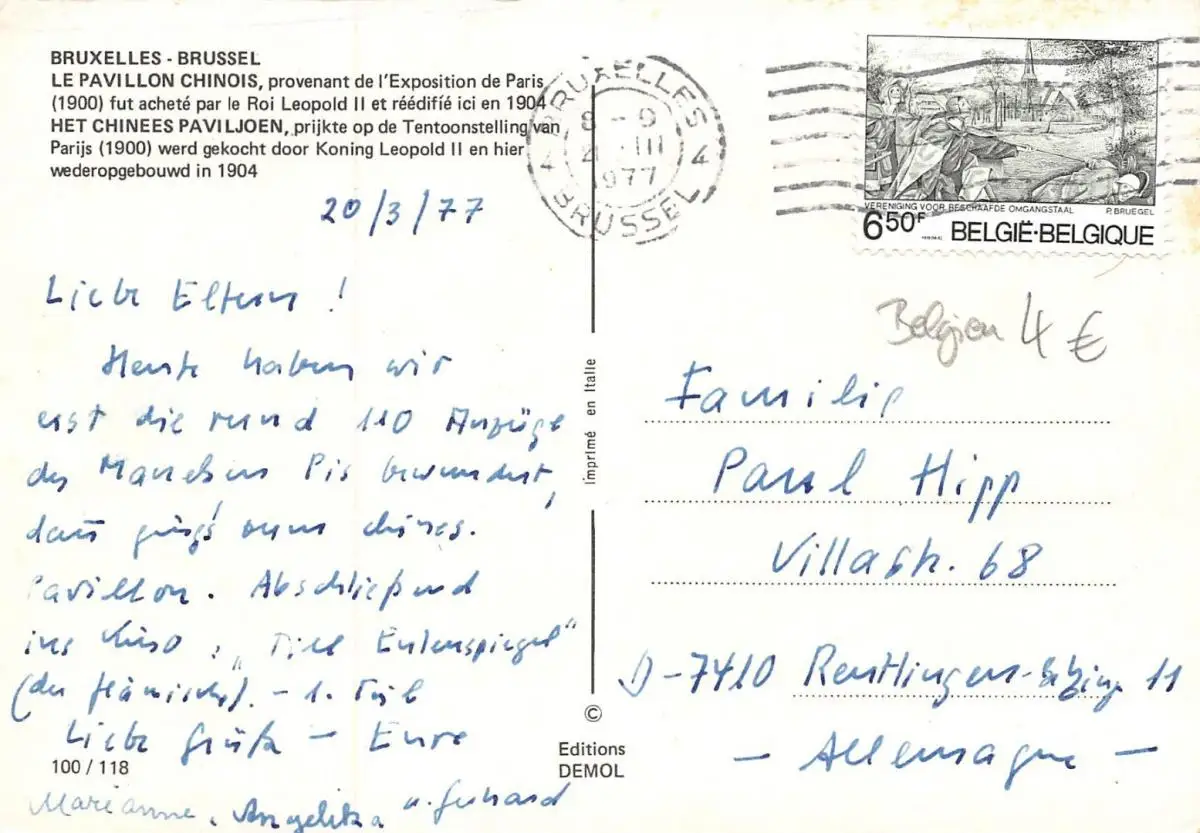 BRUXELLES - BRUSSEL
LE PAVILLON CHINOIS, provenant de l'Exposition de Paris
(1900) fut acheté par le Roi Leopold II et réédifié ici en 1904
HET CHINEES PAVILJOEN, prijkte op de Tentoonstelling van
Parijs (1900) werd gekocht door Koning Leopold II en hier
wederopgebouwd in 1904
20/3/77
Liebe Eltern!
Heute haben wir
erst die rund 110 Anzüge
des Maneken Pis bewundert,
dann ging's zum chines.
Pavillon. Abschließend
ins Kino: „Till Eulenspiegel“
(der flämische). - 1. Teil
Liebe Grüße - Eure
Marianne, Angelika u. Gerhard
100 / 118
Imprimé en Italie
©
Editions
DEMOL
BRUXELLES
4 4
8 - 9
21 . III
1977
BRUSSEL
VERENIGING VOOR BESCHAAFDE OMGANGSTAAL P. BRUEGEL
6 50F BELGIË·BELGIQUE
Belgien 4 €
Familie
Paul Hipp
Villastr. 68
D-7410 Reutlingen- 11
- Allemagne -